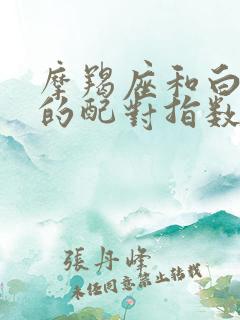 摩羯座和白
的配對指数
張丹峰
未经同意禁止转载